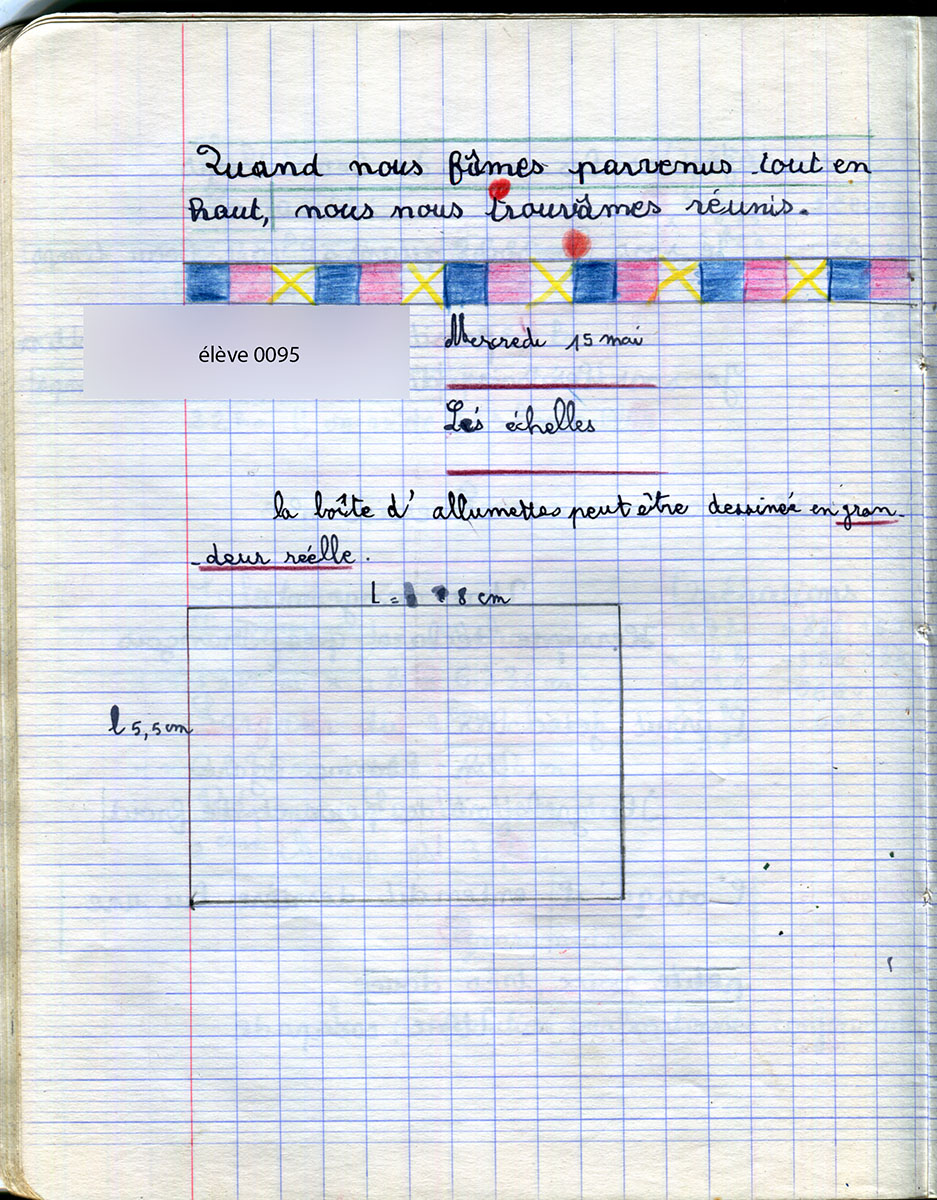 Quand nous fûmes parvenus tout en
haut, nous nous trouvâmes réunis.
élève 0095
Mercredi 15 mai
Les échelles
la boîte d'allumettes peut être dessinée en gran-
-deur réelle.
L = 8 cm
l 5,5 cm